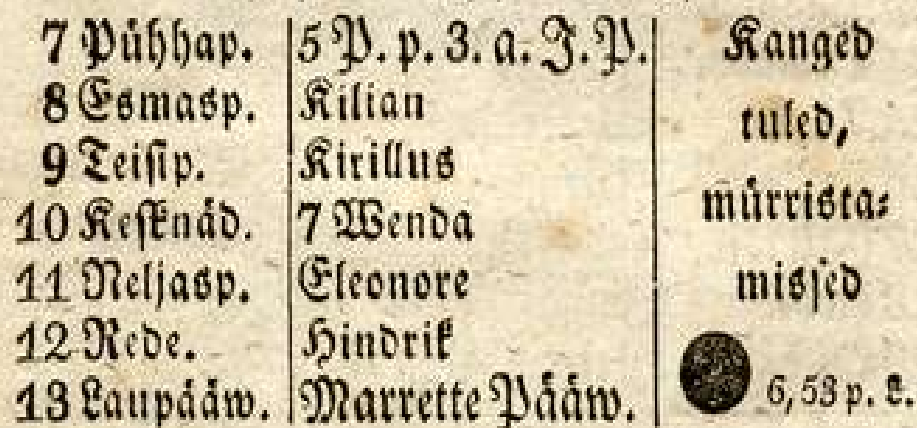 7 Pühhap. 5 P. p. 3. a. J. P. Kanged
8 Esmasp. Kilian
tuled,
9 Teisip. Kirillus
10 Kesknäd. 7 Wenda mürrista-
11 Neljasp. Eleonore missed
12 Rede. Hindrik
13 Laupääw. Marrette Pääw. 6,53 p. L.